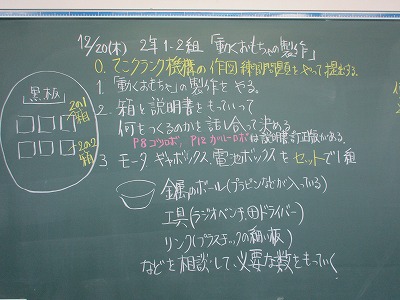 12/20(木) 2年1-2組「動くおもちゃの製作」
0. てこクランク機構の作図練習問題をやって提出する。
1. 「動くおもちゃ」の製作をやる。
2. 箱を説明書をもっていって
何をつくるのかを話し合って決める
P8 ゴソロボ, P12 カバーロボは説明書訂正版がある.
3. モータ ギヤボックス、電池ボックスをセットで1組
金属のボール(プラピンなどが入っている)
工具(ラジオペンチ、⊕ドライバー)
リンク(プラスチックの細い板)
などを相談して、必要な数をもっていく
黒板
2の1
箱
2の2
箱